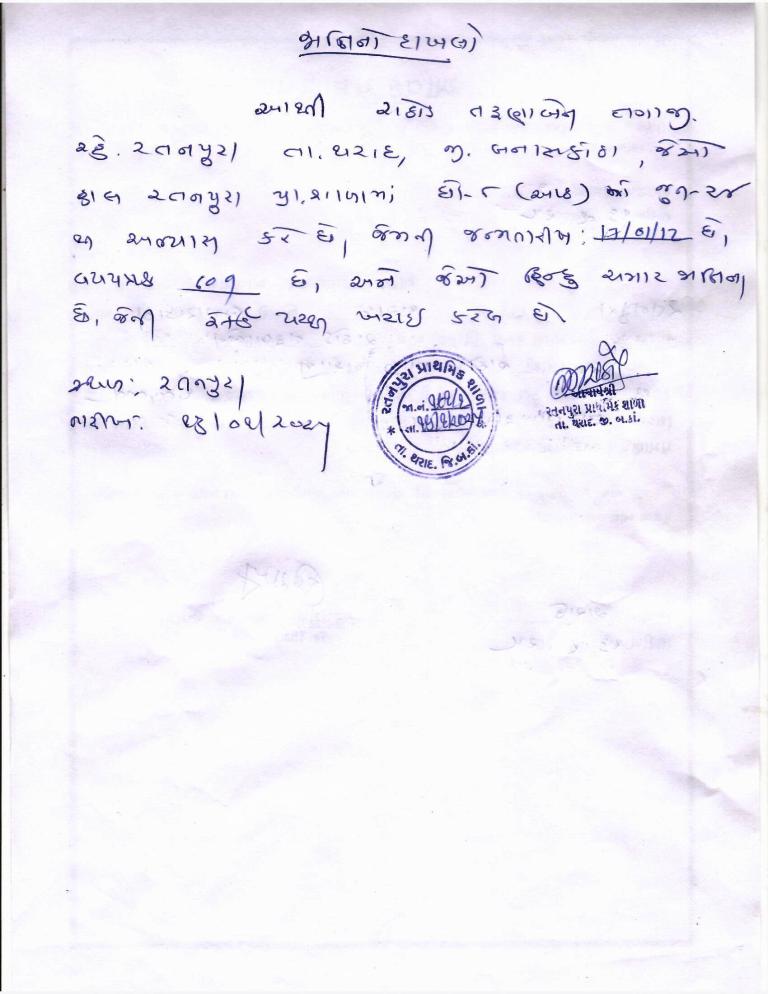 જાતિનો દાખલો
આથી રાઠોડ તરૂણાબેન નગાજી.
રહે. રતનપુરા તા. થરાદ, જી. બનાસકાંઠા, જેઓ
હાલ રતનપુરા પ્રા. શાળામાં ધો-૮ (આઠ) માં જુન-૨૪
થી અભ્યાસ કરે છે, જેમની જન્મતારીખ: 17/01/12 છે,
વયપત્રક ૮૦૧ છે, અને જેઓ હિન્દુ ચમાર જાતિના
છે, જેની રેકર્ડ પરથી ખરાઇ કરેલ છે.
સ્થળ: રતનપુરા
તારીખ: ૧૬/૦૧/૨૦૨૫
રતનપુરા પ્રાથમિક શાળા
જા.નં.
તા.
તા. થરાદ. જિ.બ.કાં.
આચાર્યશ્રી
રતનપુરા પ્રાથમિક શાળા
તા. થરાદ. જી. બ.કાં.